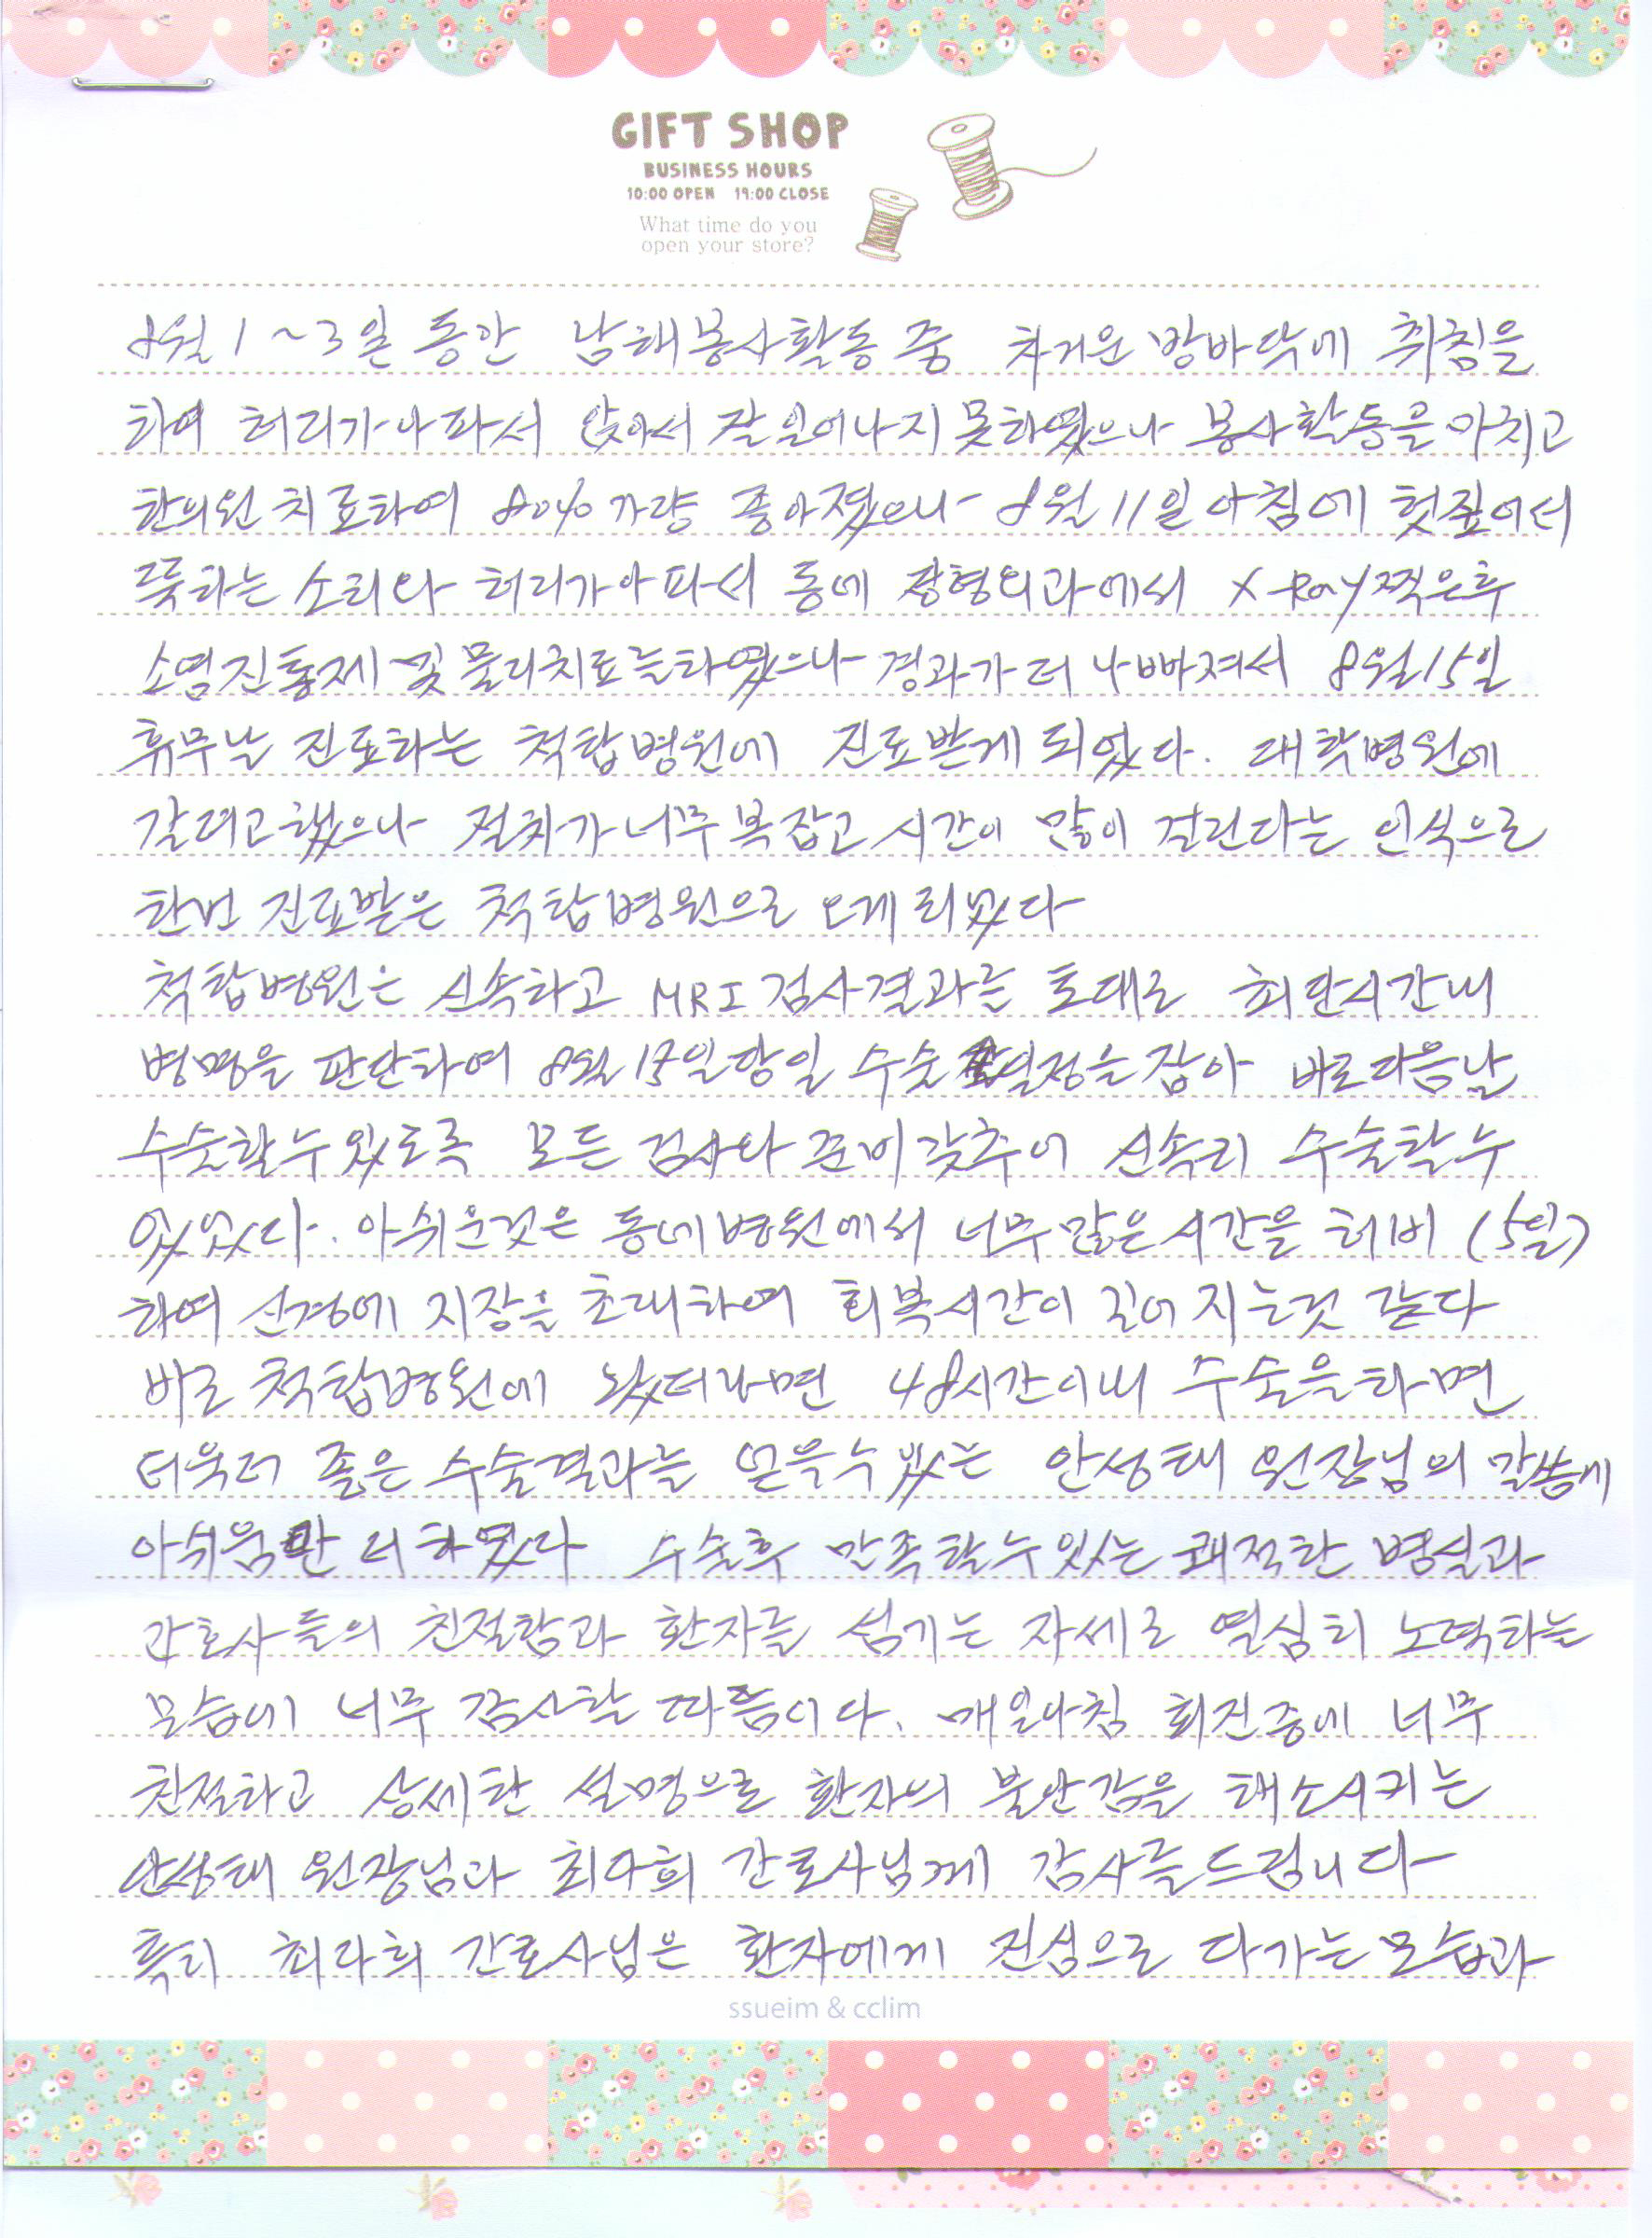 GIFT SHOP
BUSINESS HOURS
10:00 OPEN 19:00 CLOSE
What time do you
open your store?
8월 1~3일 동안 남해봉사활동 중 차거운 방바닥에 취침을
하여 허리가 아파서 앉아서 잘 일어나지 못하였으나 봉사활동을 마치고
한의원 치료하여 80% 가량 좋아졌으나 8월 11일 아침에 헛짚어서
뚝하는 소리와 허리가 아파서 동네 정형외과에서 X-Ray 찍은후
소염진통제 및 물리치료를 하였으나 경과가 더 나빠져서 8월 15일
휴무날 진료하는 척탑병원에 진료받게 되었다. 대학병원에
갈려고 했으나 절차가 너무 복잡고 시간이 많이 걸린다는 인식으로
한번 진료받은 척탑병원으로 오게 되었다
척탑병원은 신속하고 MRI 검사결과를 토대로 최단시간내
병명을 판단하여 8월 15일 당일 수술 일정을 잡아 바로 다음날
수술할수 있도록 모든 검사와 준비 갖추어 신속히 수술할수
있었다. 아쉬운것은 동네병원에서 너무 많은 시간을 허비 (5일)
하여 신경에 지장을 초래하여 회복시간이 길어 지는것 같다
바로 척탑병원에 왔더라면 48시간이내 수술을 하면
더욱더 좋은 수술결과를 얻을수 있는 안성태 원장님의 말씀에
아쉬움만 더하였다 수술후 만족할수 있는 쾌적한 병실과
간호사들의 친절함과 환자를 섬기는 자세로 열심히 노력하는
모습에 너무 감사할 따름이다. 매일아침 회진중에 너무
친절하고 상세한 설명으로 환자의 불안감을 해소시키는
안성태 원장님과 최다희 간호사님께 감사를 드립니다
특히 최다희 간호사님은 환자에게 진심으로 다가는 모습과
ssueim & cclim